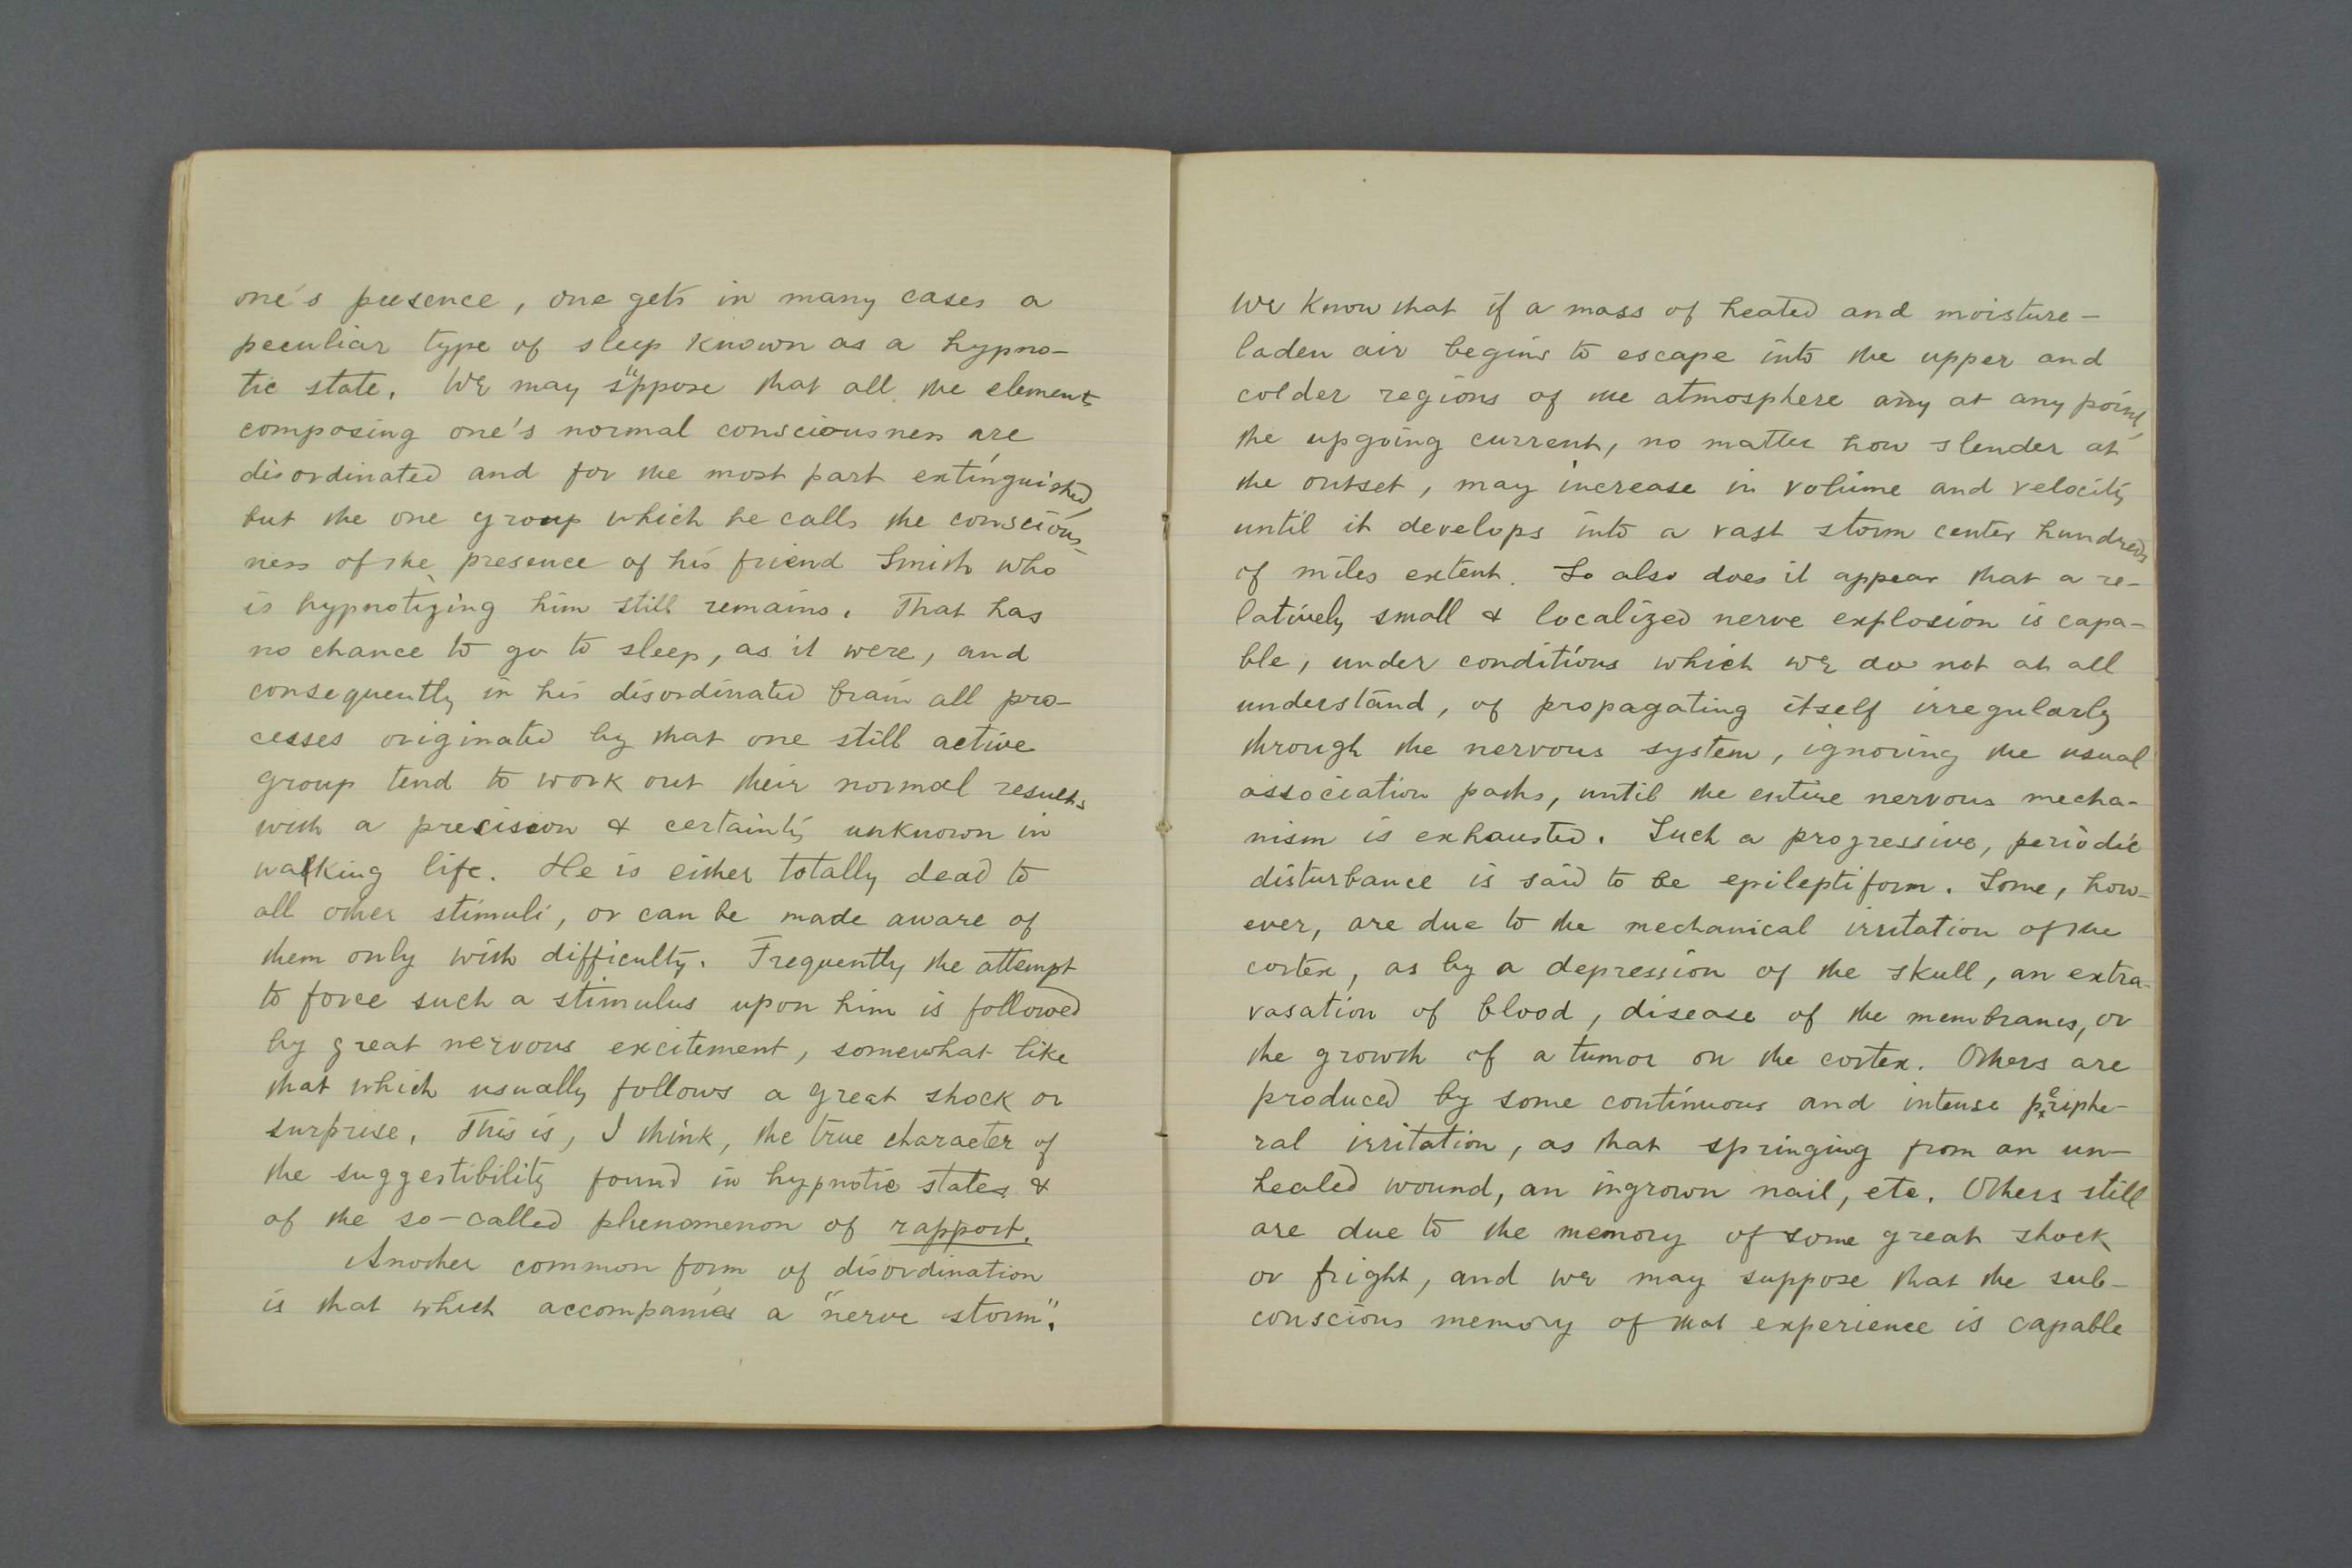 one's presence, one gets in many cases a
peculiar type of sleep known as a hypno-
tic state. We may suppose that all the elements
composing one's normal consciousness are
disordinated and for the most part extinguished,
but the one group which he calls the conscious-
ness of the presence of his friend Smith who
is hypnotizing him still remains. That has
no chance to go to sleep, as it were, and
consequently in his disordinated brain all pro-
cesses originated by that one still active
group tend to work out their normal results
with a precision & certainty unknown in
walking life. He is either totally dead to
all other stimuli, or can be made aware of
them only with difficulty. Frequently the attempt
to force such a stimulus upon him is followed
by great nervous excitement, somewhat like
that which usually follows a great shock or
surprise. This is, I think, the true character of
the suggestibility found in hypnotic states &
of the so-called phenomenon of rapport.
Another common form of disordination
is that which accompanies a "nerve storm".
We know that if a mass of heated and moisture-
laden air begins to escape into the upper and
colder regions of the atmosphere any at any point,
the upgoing current, no matter how slender at
the outset, may increase in volume and velocity
until it develops into a vast storm center hundreds
of miles extent. So also does it appear that a re-
latively small & localized nerve explosion is capa-
ble, under conditions which we do not at all
understand, of propagating itself irregularly
through the nervous system, ignoring the usual
association paths, until the entire nervous mecha-
nism is exhausted. Such a progressive, periodic
disturbance is said to be epileptiform. Some, how-
ever, are due to the mechanical irritation of the
cortex, as by a depression of the skull, an extra-
vasation of blood, disease of the membranes, or
the growth of a tumor on the cortex. Others are
produced by some continuous and intense periphe-
ral irritation, as that springing from an un-
healed wound, an ingrown nail, etc. Others still
are due to the memory of some great shock
or fright, and we may suppose that the sub-
conscious memory of that experience is capable